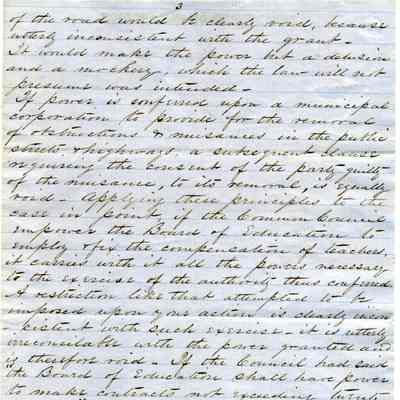 3
of the road would be clearly void, because
utterly inconsistent with the grant -
It would make the power but a delusion
and a mockery, which the law will not
presume was intended -
If power is conferred upon a municipal
corporation to provide for the removal
of obstructions & nuisances in the public
streets & highways, a subsequent clause
requiring the consent of the party guilty
of the nuisance, to its removal, is equally
void - Applying these principles to the
case in point, if the Common Council
empower the Board of Education to
employ & fix the compensation of teachers,
it carries with it all the powers necessary
to the exercise of the authority thus conferred
A restriction like that attempted to be
imposed upon your action is clearly incon
- sistent with such exercise - it is utterly
irreconcilable with the power granted and
is therefore void - If the Council had said
the Board of Education shall have power
to make contracts not exceeding twenty